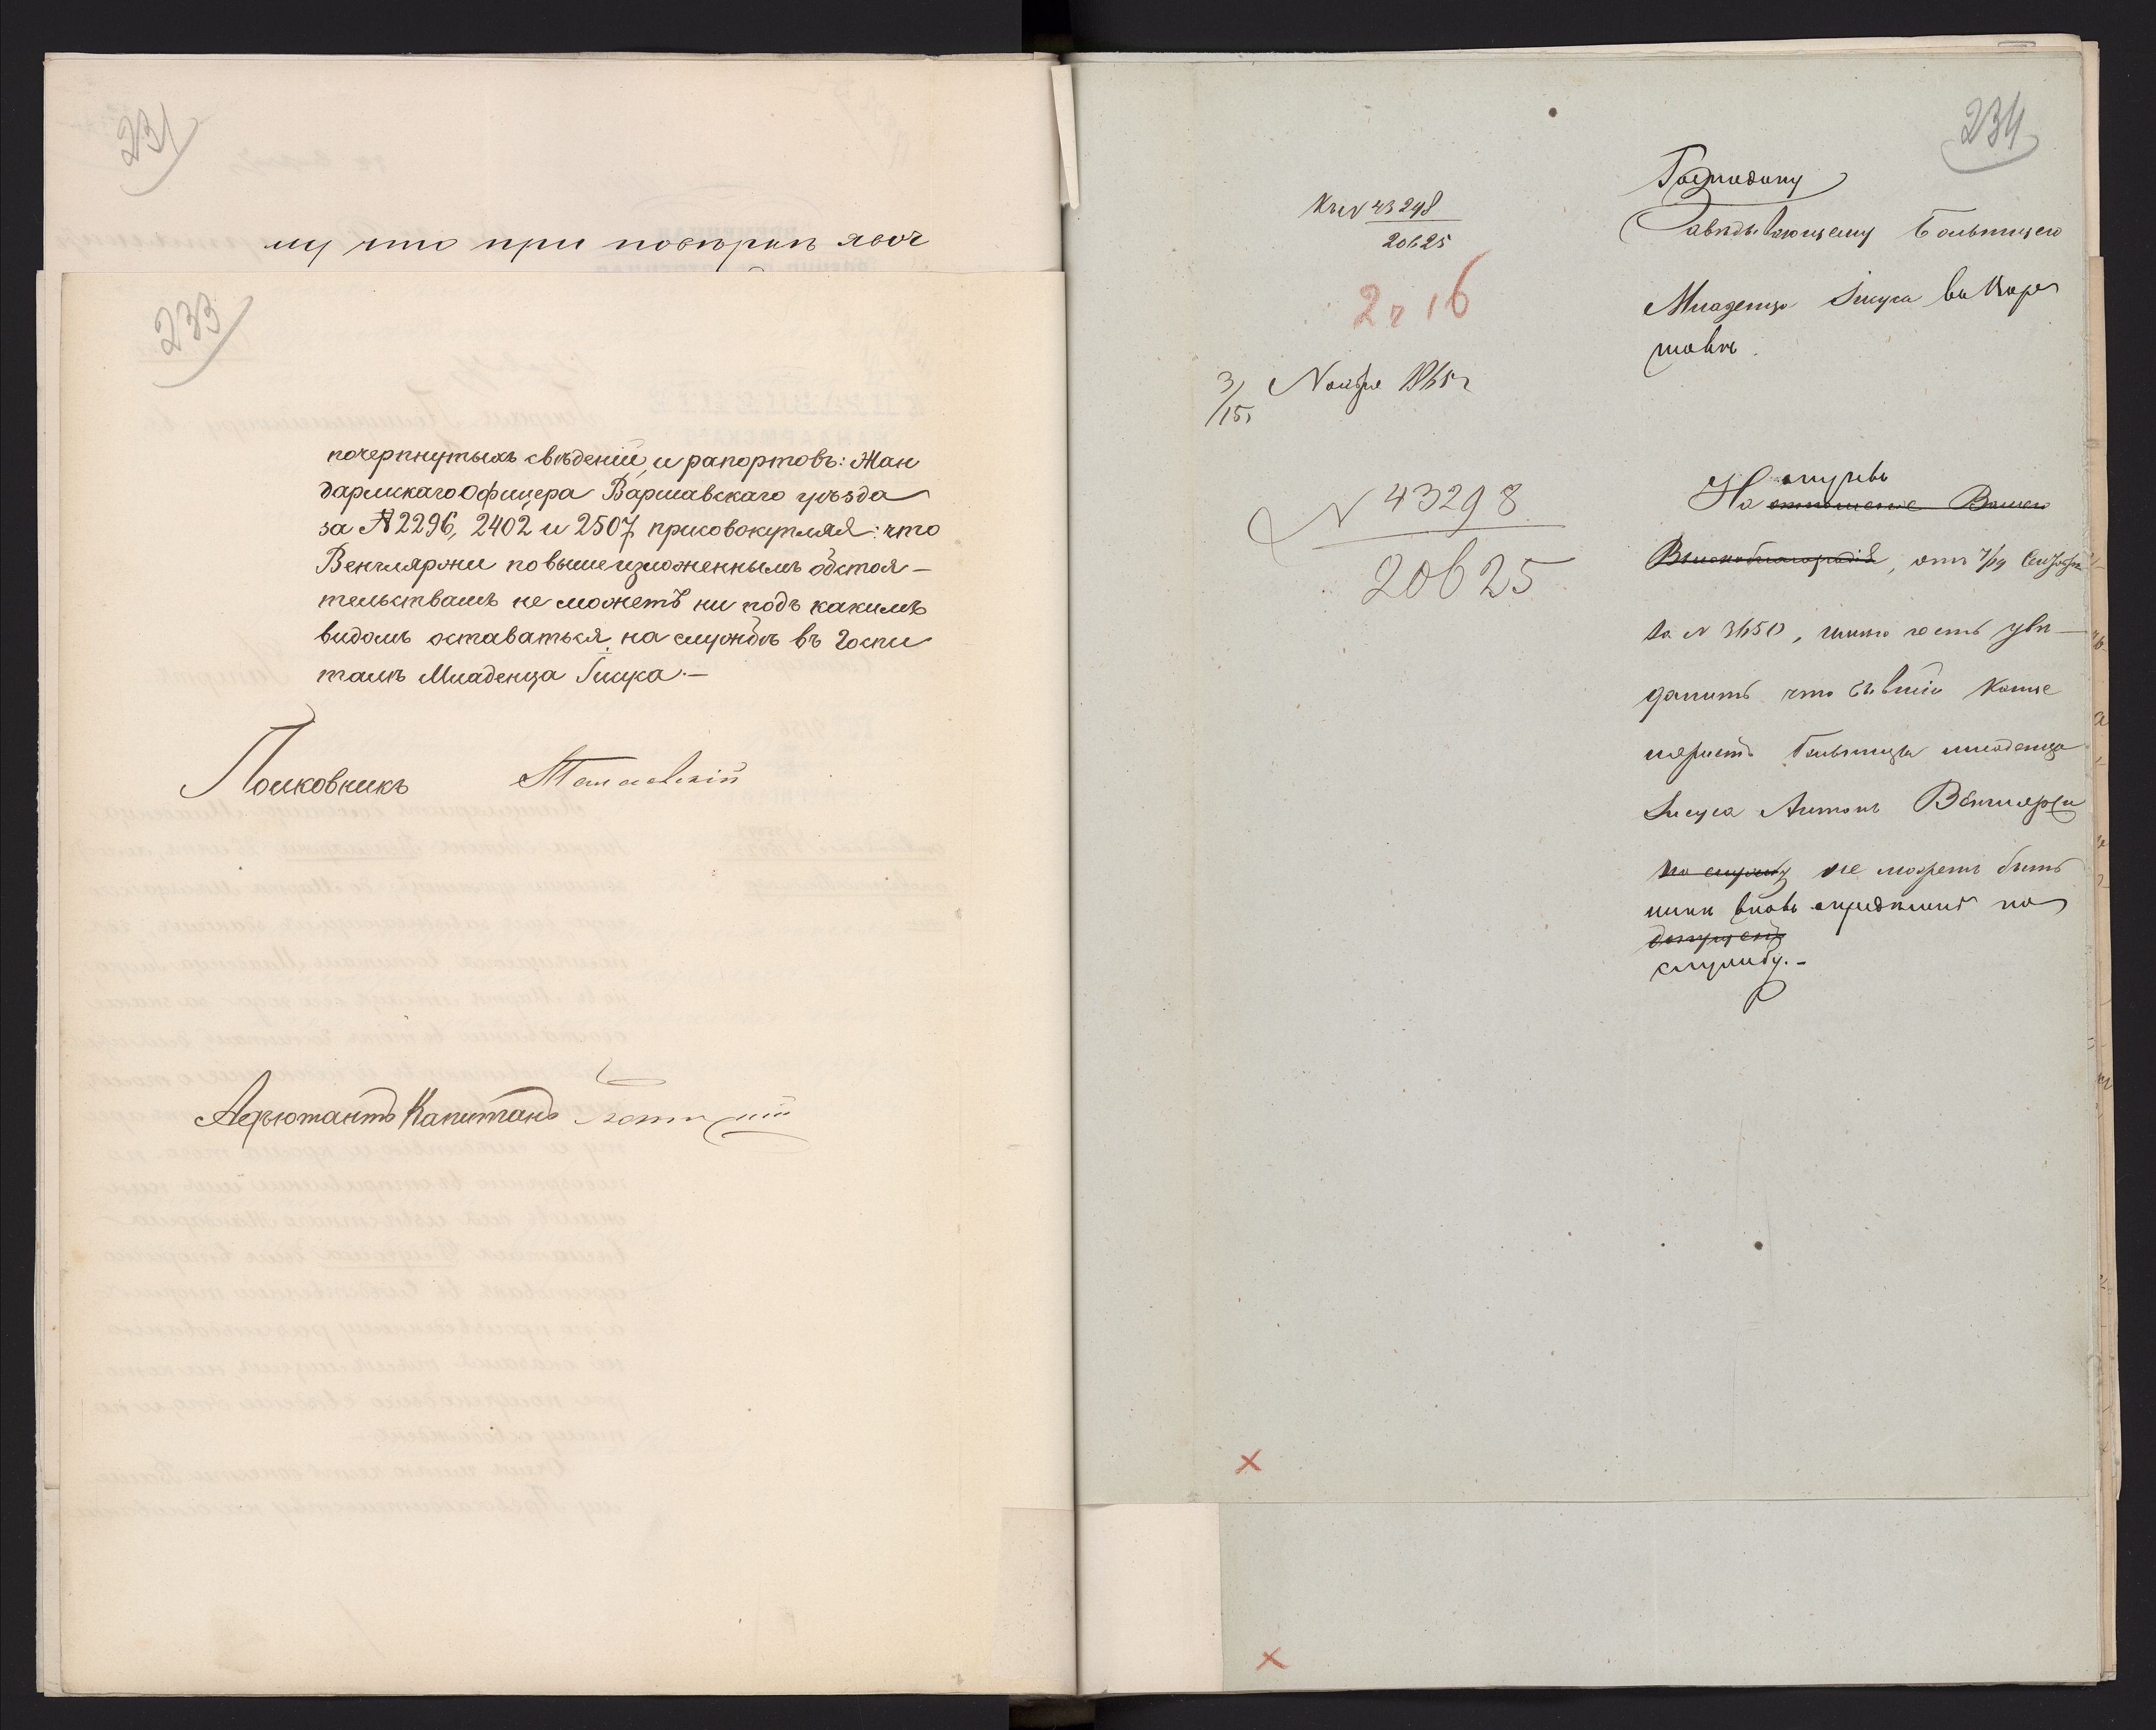 231
му что при поверке
233
почерпнутыхъ свѣденiй, и рапортовъ: Жан
дармскаго Офицера Варшавскаго уѣзда
за № 2296, 2402 и 2507 присовокупляя: что
Венглярони по вышеизложеннымъ обстоя–
тельствамъ не можетъ ни подъ какимъ
видомъ оставаться на службѣ въ Госпи
талѣ Младенца Iисуса.–
Полковникъ
Адъютантъ Капитанъ
234
Къ № 43298
20625
2 ч 16
3/15 Ноября 1865 г
№ 43298
20625
Господину
Завѣдывающему Больницею
Младенца Iисуса въ Вар
шавѣ.
отзывъ
На отношенiе Вашего
Высокоблагородiя, отъ 7/19
за № 3650, имѣю честь увѣ–
домить что бывшiй Канце
ляристъ Больницы младенца
Iисуса Антонъ Венглярони
на службу не можетъ быть
нынѣ вновь опредѣленъ на
допущенъ
службу.–